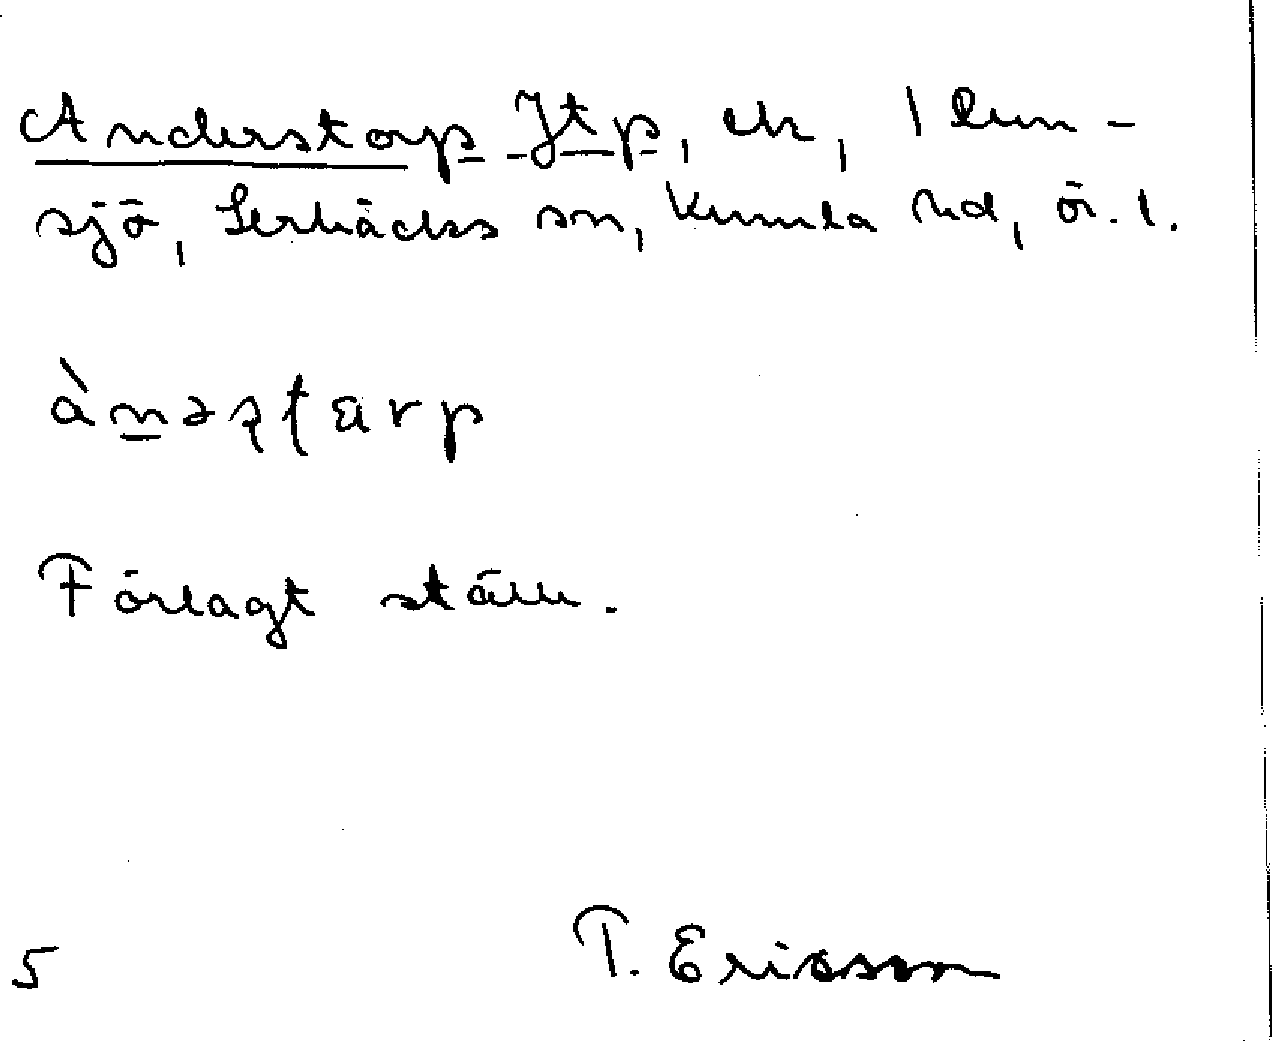 Anderstorp Jtp, ck, 1 Lunn-
sjö, Lerbäcks sn, Kumla hd, ör. l.
Förlagt ställe.
5 T. Ericsson